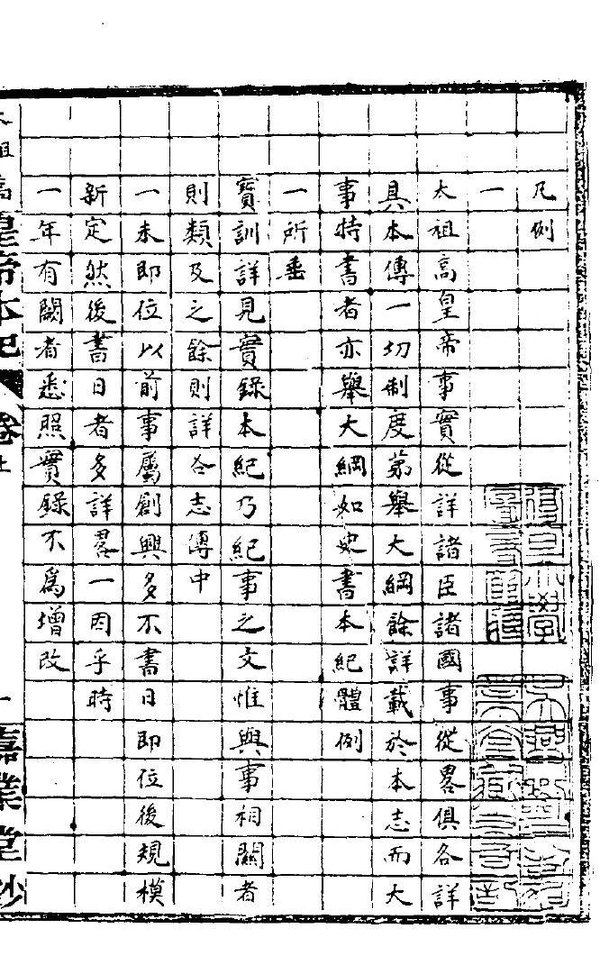 凡例
一
太祖高皇帝事實從詳諸臣諸國事從畧俱各詳
具本傳一切制度第舉大綱餘詳載於本志而大
事特書者亦舉大綱如史書本紀體例
一所垂
寶訓詳見實錄本紀乃紀事之文惟與事相關者
則類及之餘則詳各志傳中
一未即位以前事屬創興多不書日即位後規模
新定然後書日者多詳畧一因乎時
一年有闕者悉照實錄不爲增改
太祖高皇帝本紀 卷上 一 嘉業堂鈔